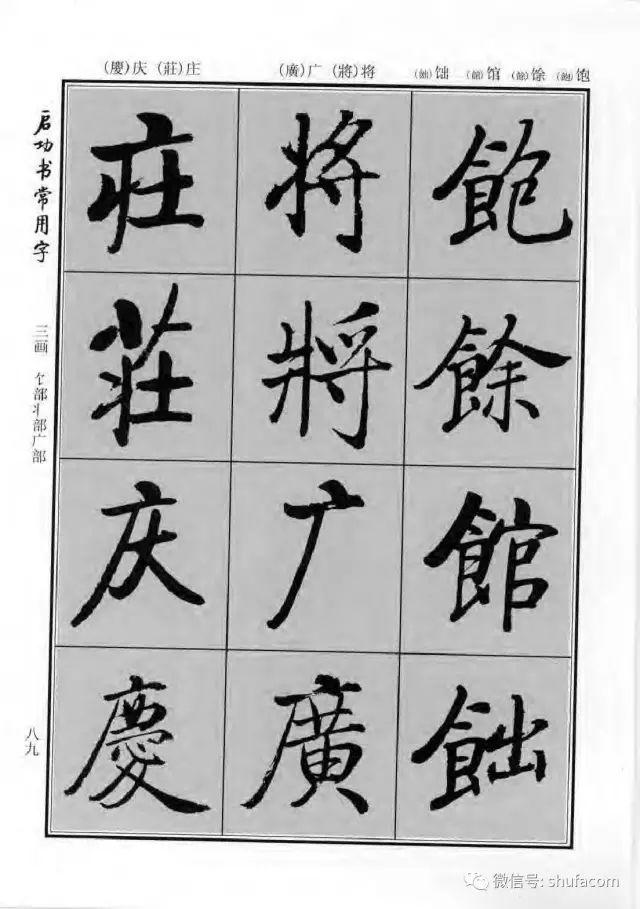 (慶)庆 (莊)庄 (廣)广 (將)将 (飿)饳 (館)馆 (餘)馀 (飽)饱
飽餘館飿
将將广廣
庄莊庆慶
启功书常用字
三画 饣部丬部广部
八九
微信号: shufacom